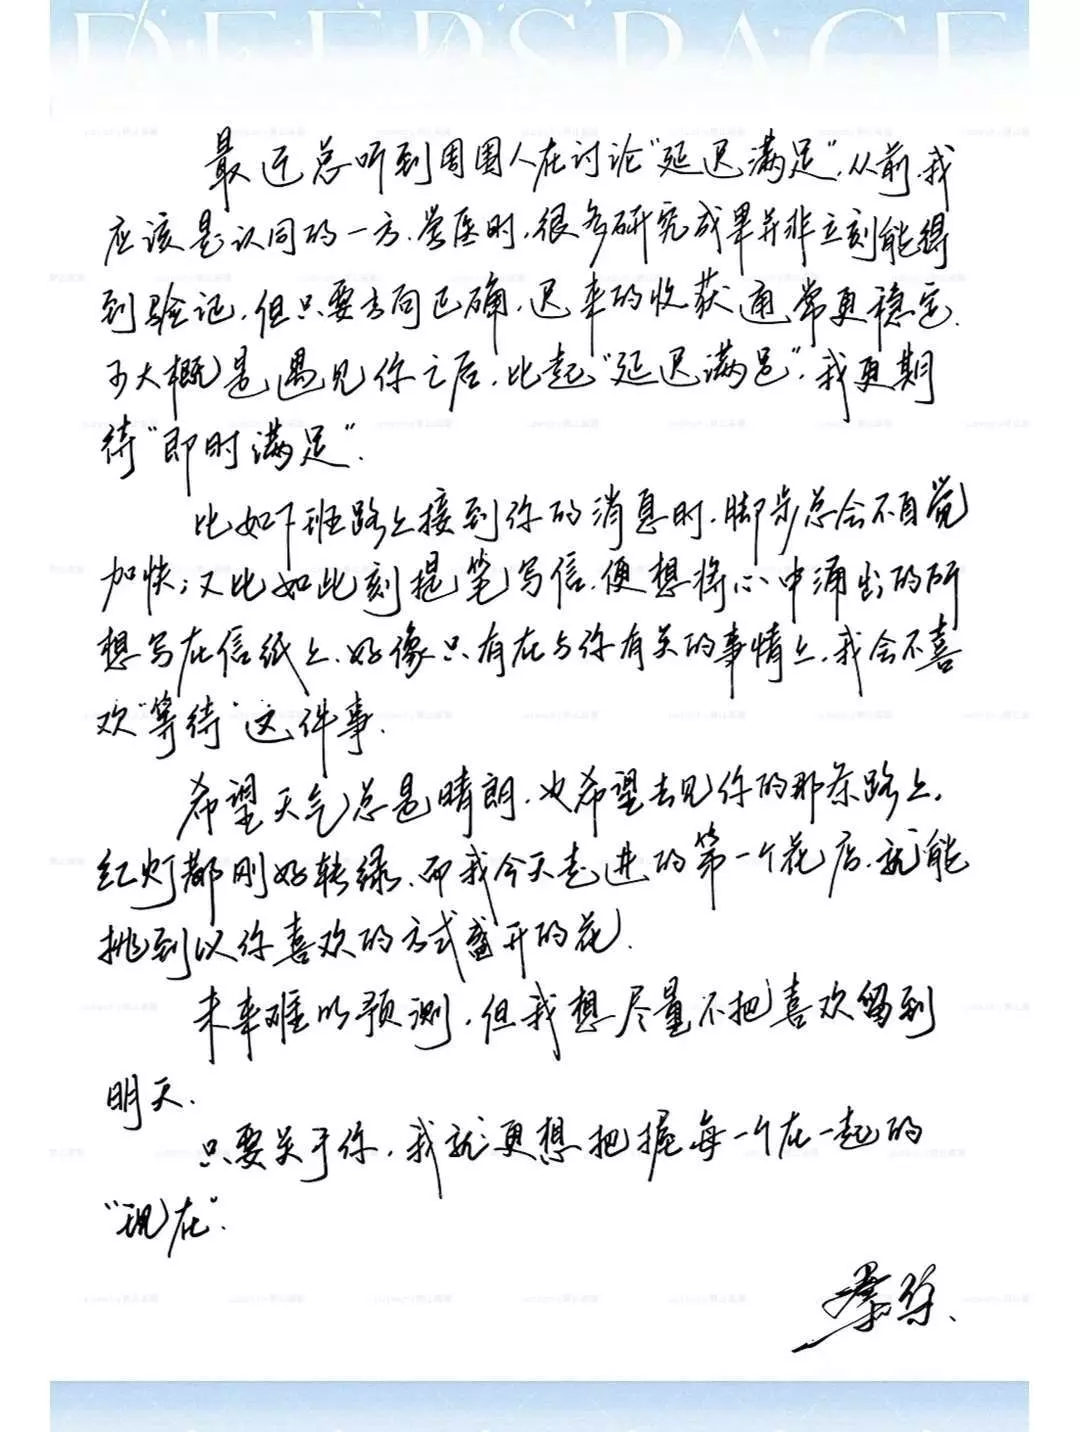 DEEPSPACE
最近总听到周围人在讨论“延迟满足”.从前,我
应该是认同的一方.学医时,很多研究成果并非立刻能得
到验证,但只要方向正确,迟来的收获通常更稳定.
可大概是遇见你之后,比起“延迟满足”,我更期
待“即时满足”.
比如下班路上接到你的消息时,脚步总会不自觉
加快;又比如此刻提笔写信,便想将心中涌出的所
想写在信纸上.好像只有在与你有关的事情上,我会不喜
欢“等待”这件事.
希望天气总是晴朗,也希望去见你的那条路上,
红灯都刚好转绿.而我今天走进的第一个花店,就能
挑到以你喜欢的方式盛开的花.
未来难以预测,但我想尽量不把喜欢留到
明天.
只要关于你,我就更想把握每一个在一起的
“现在”.
黎深.